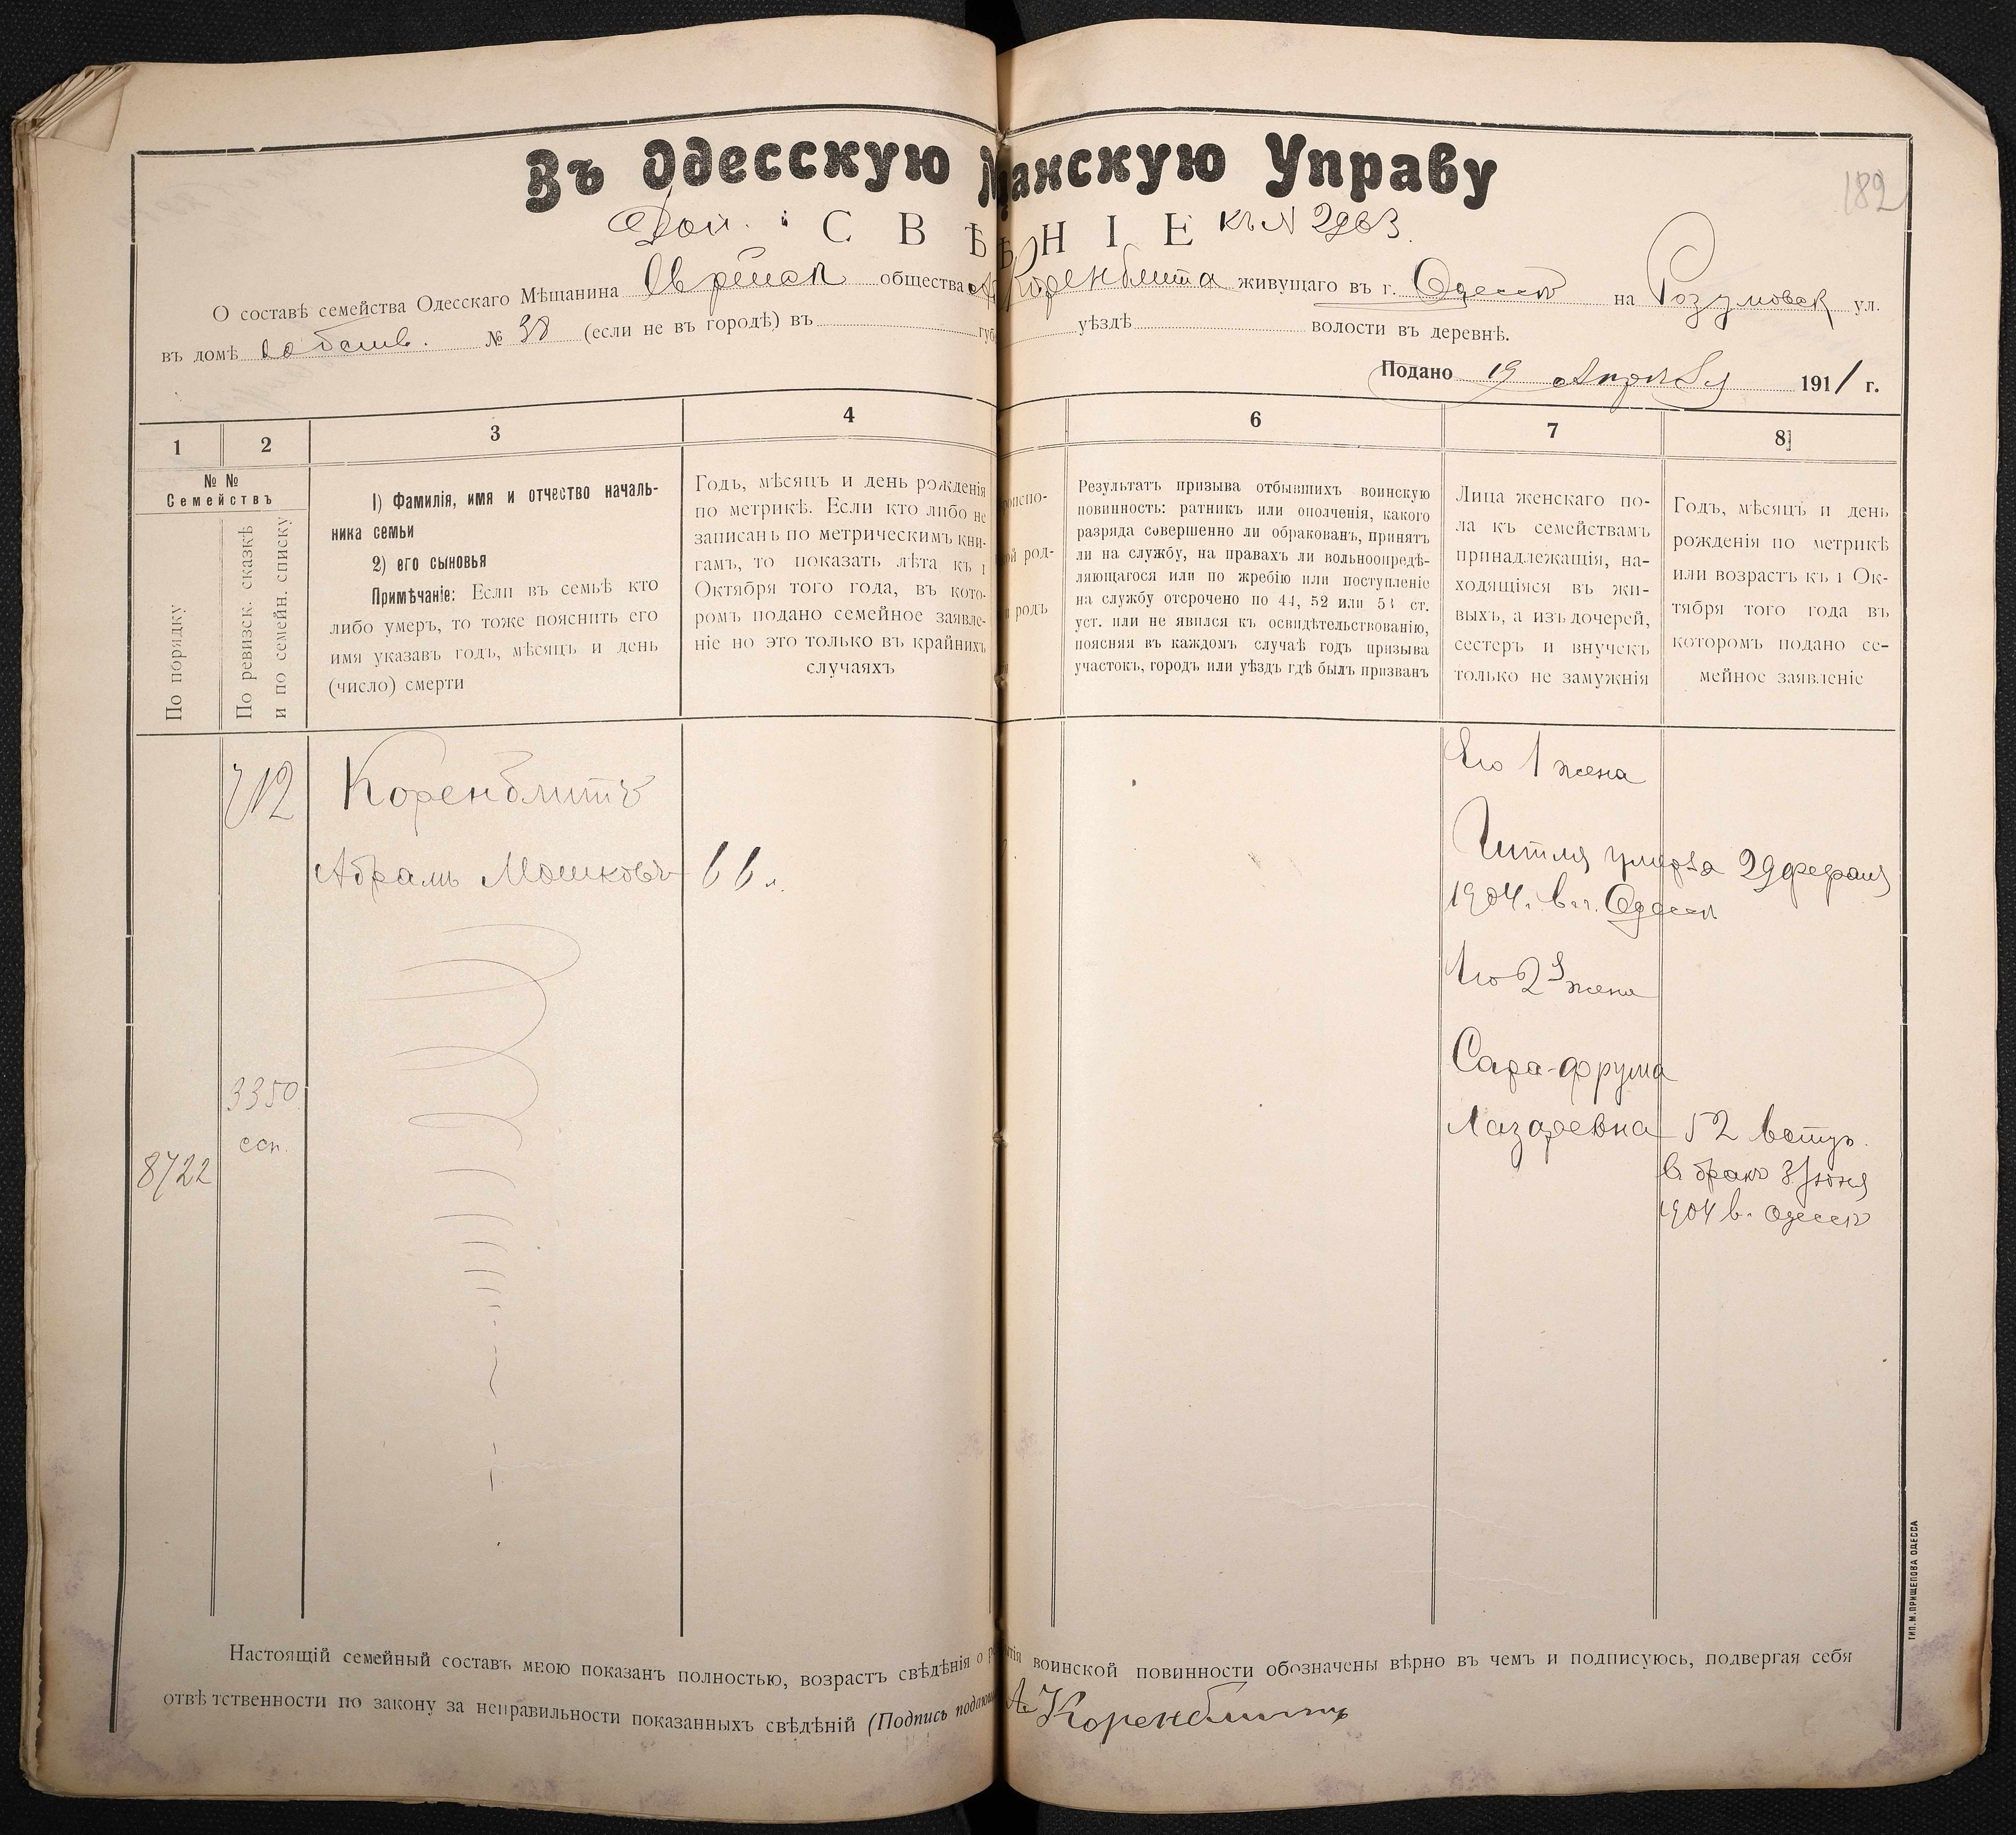 Въ Одесскую М щанскую Управу
182
Доп. СВѢ ѢНІЕ къ N 2963.
О составѣ семейства Одесскаго Мѣщанина Еврейск общества А Коренблита живущаго въ г. Одессѣ на Розумовск ул.
въ домѣ собств. № 38 (если не въ городѣ) въ губ уѣздѣ волости въ деревнѣ.
Подано 19 Апрѣля 1911 г.
1 2 3 4 6 7 8
№ №
Семействъ
По порядку
По ревизск. сказкѣ
и по семейн. списку
1) Фамилія, имя и отчество началь-
ника семьи
2) его сыновья
Примѣчаніе: Если въ семьѣ кто
либо умеръ, то тоже пояснить его
имя указавъ годъ, мѣсяцъ и день
(число) смерти
Годъ, мѣсяцъ и день рожденія
по метрикѣ. Если кто либо не
записанъ по метрическимъ кни-
гамъ, то показать лѣта къ 1
Октября того года, въ кото-
ромъ подано семейное заявле-
ніе но это только въ крайнихъ
случаяхъ
род-
родъ
Результатъ призыва отбывшихъ воинскую
повинность: ратникъ или ополченія, какого
разряда совершенно ли обракованъ, принятъ
ли на службу, на правахъ ли вольноопредѣ-
ляющагося или по жребію или поступленіе
на службу отсрочено по 44, 52 или 53 ст.
уст. или не явился къ освидѣтельствованію,
поясняя въ каждомъ случаѣ годъ призыва
участокъ, городъ или уѣздъ гдѣ былъ призванъ
Лица женскаго по-
ла къ семействамъ
принадлежащія, на-
ходящіяся въ жи-
выхъ, а изъ дочерей,
сестеръ и внучекъ
только не замужнія
Годъ, мѣсяцъ и день
рожденія по метрикѣ
или возрастъ къ 1 Ок-
тября того года въ
которомъ подано се-
мейное заявленіе
712
Коренблитъ
Абрамъ Мошковъ 66 л.
3350
есп.
8722
Его 1 жена
Гитля умерла 29 февраля
1904 г. в г. Одессѣ
Его 2я жена
Сара-Фрума
Лазаревна 52 вступ.
в бракъ 3 Июня
1904 в г. Одессѣ
Настоящій семейный составъ мною показанъ полностью, возрастъ свѣдѣнія о воинской повинности обозначены вѣрно въ чемъ и подписуюсь, подвергая себя
отвѣтственности по закону за неправильности показанныхъ свѣдѣній (Подпись А Коренблитъ
ТИП. М. ПРИЩЕПОВА ОДЕССА